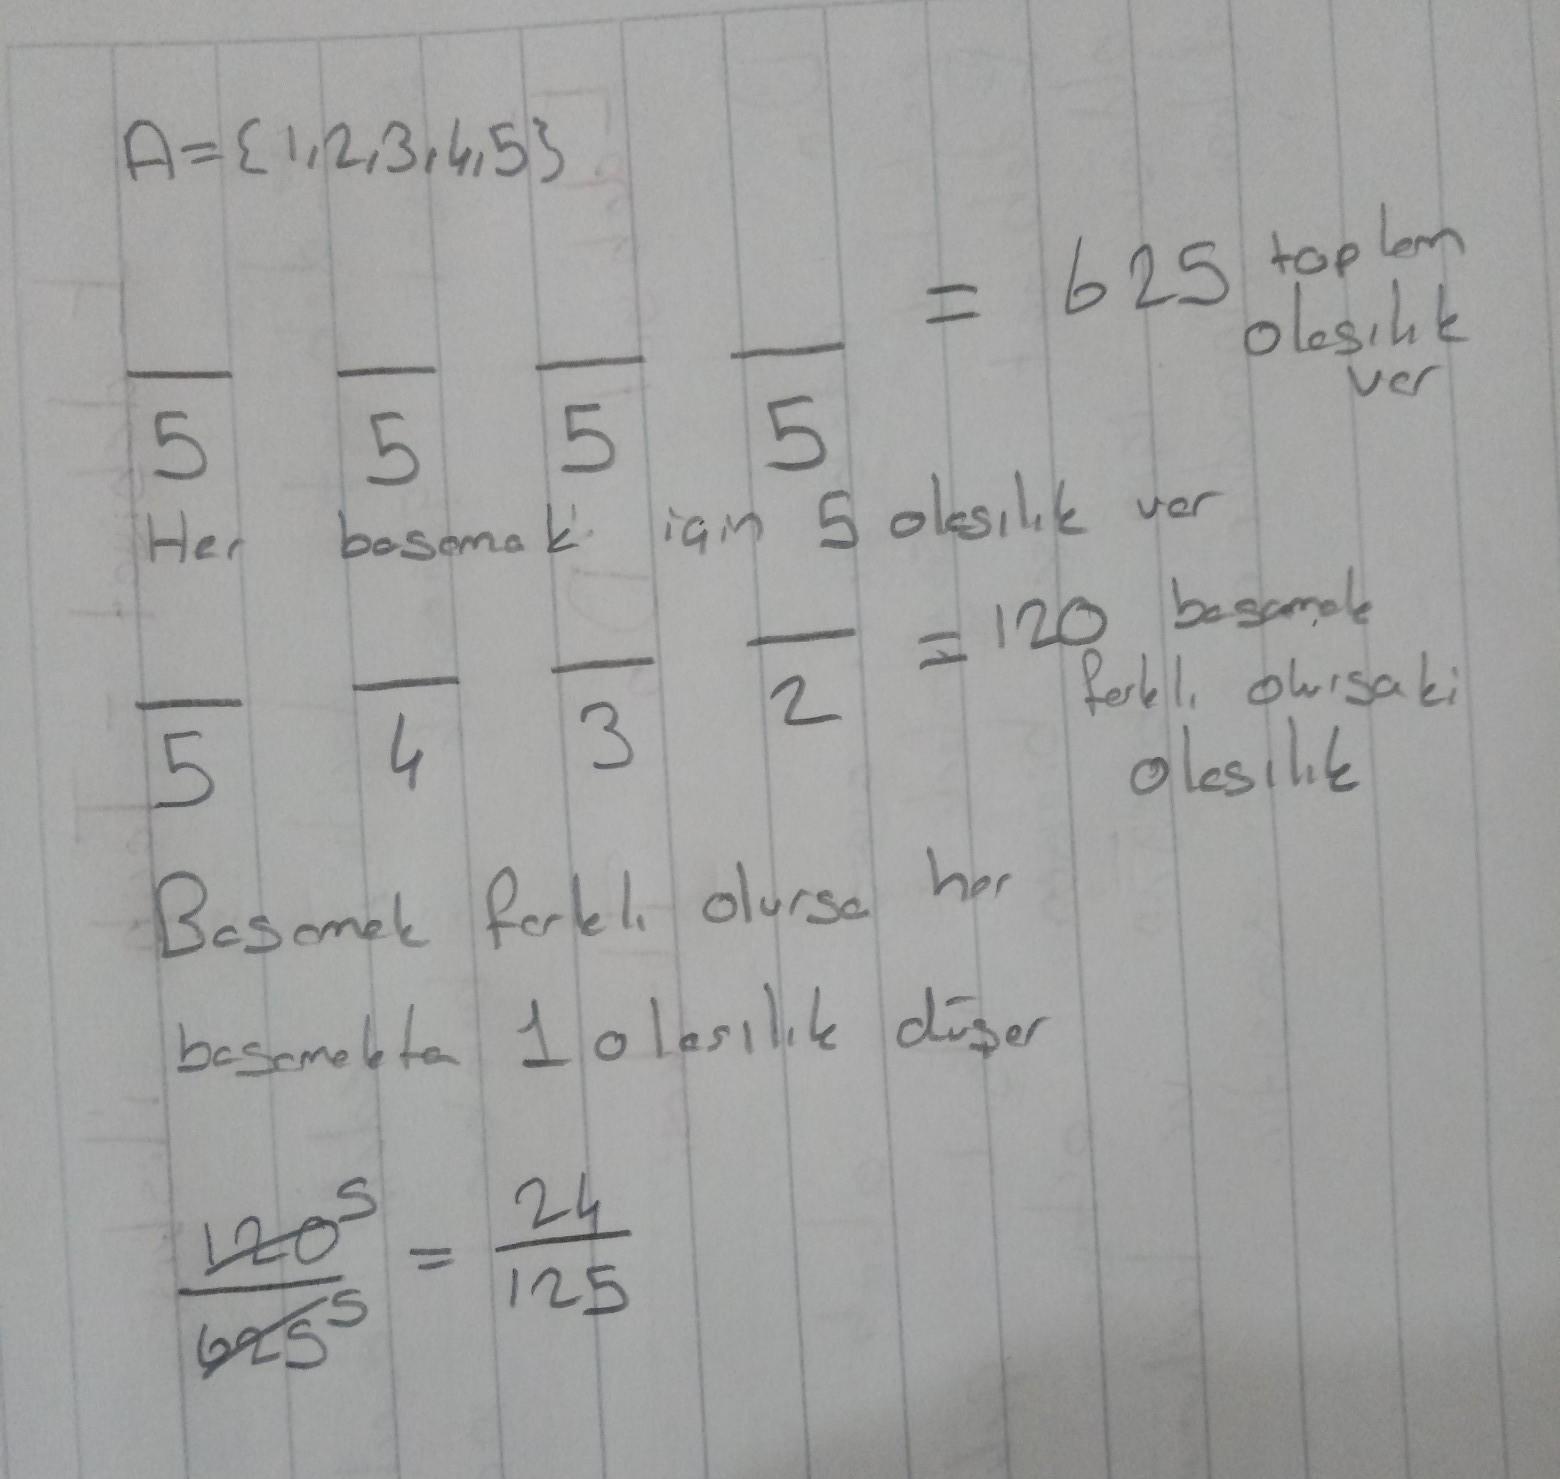 A={1,2,3,4,5}
= 625 toplam
olasılık
var
5 5 5 5
Her basamak için 5 olasılık var
= 120 basamak
farklı olursaki
olasılık
5 4 3 2
Basamak farklı olursa her
basamakta 1 olasılık düşer
120⁵ / 625⁵ = 24 / 125